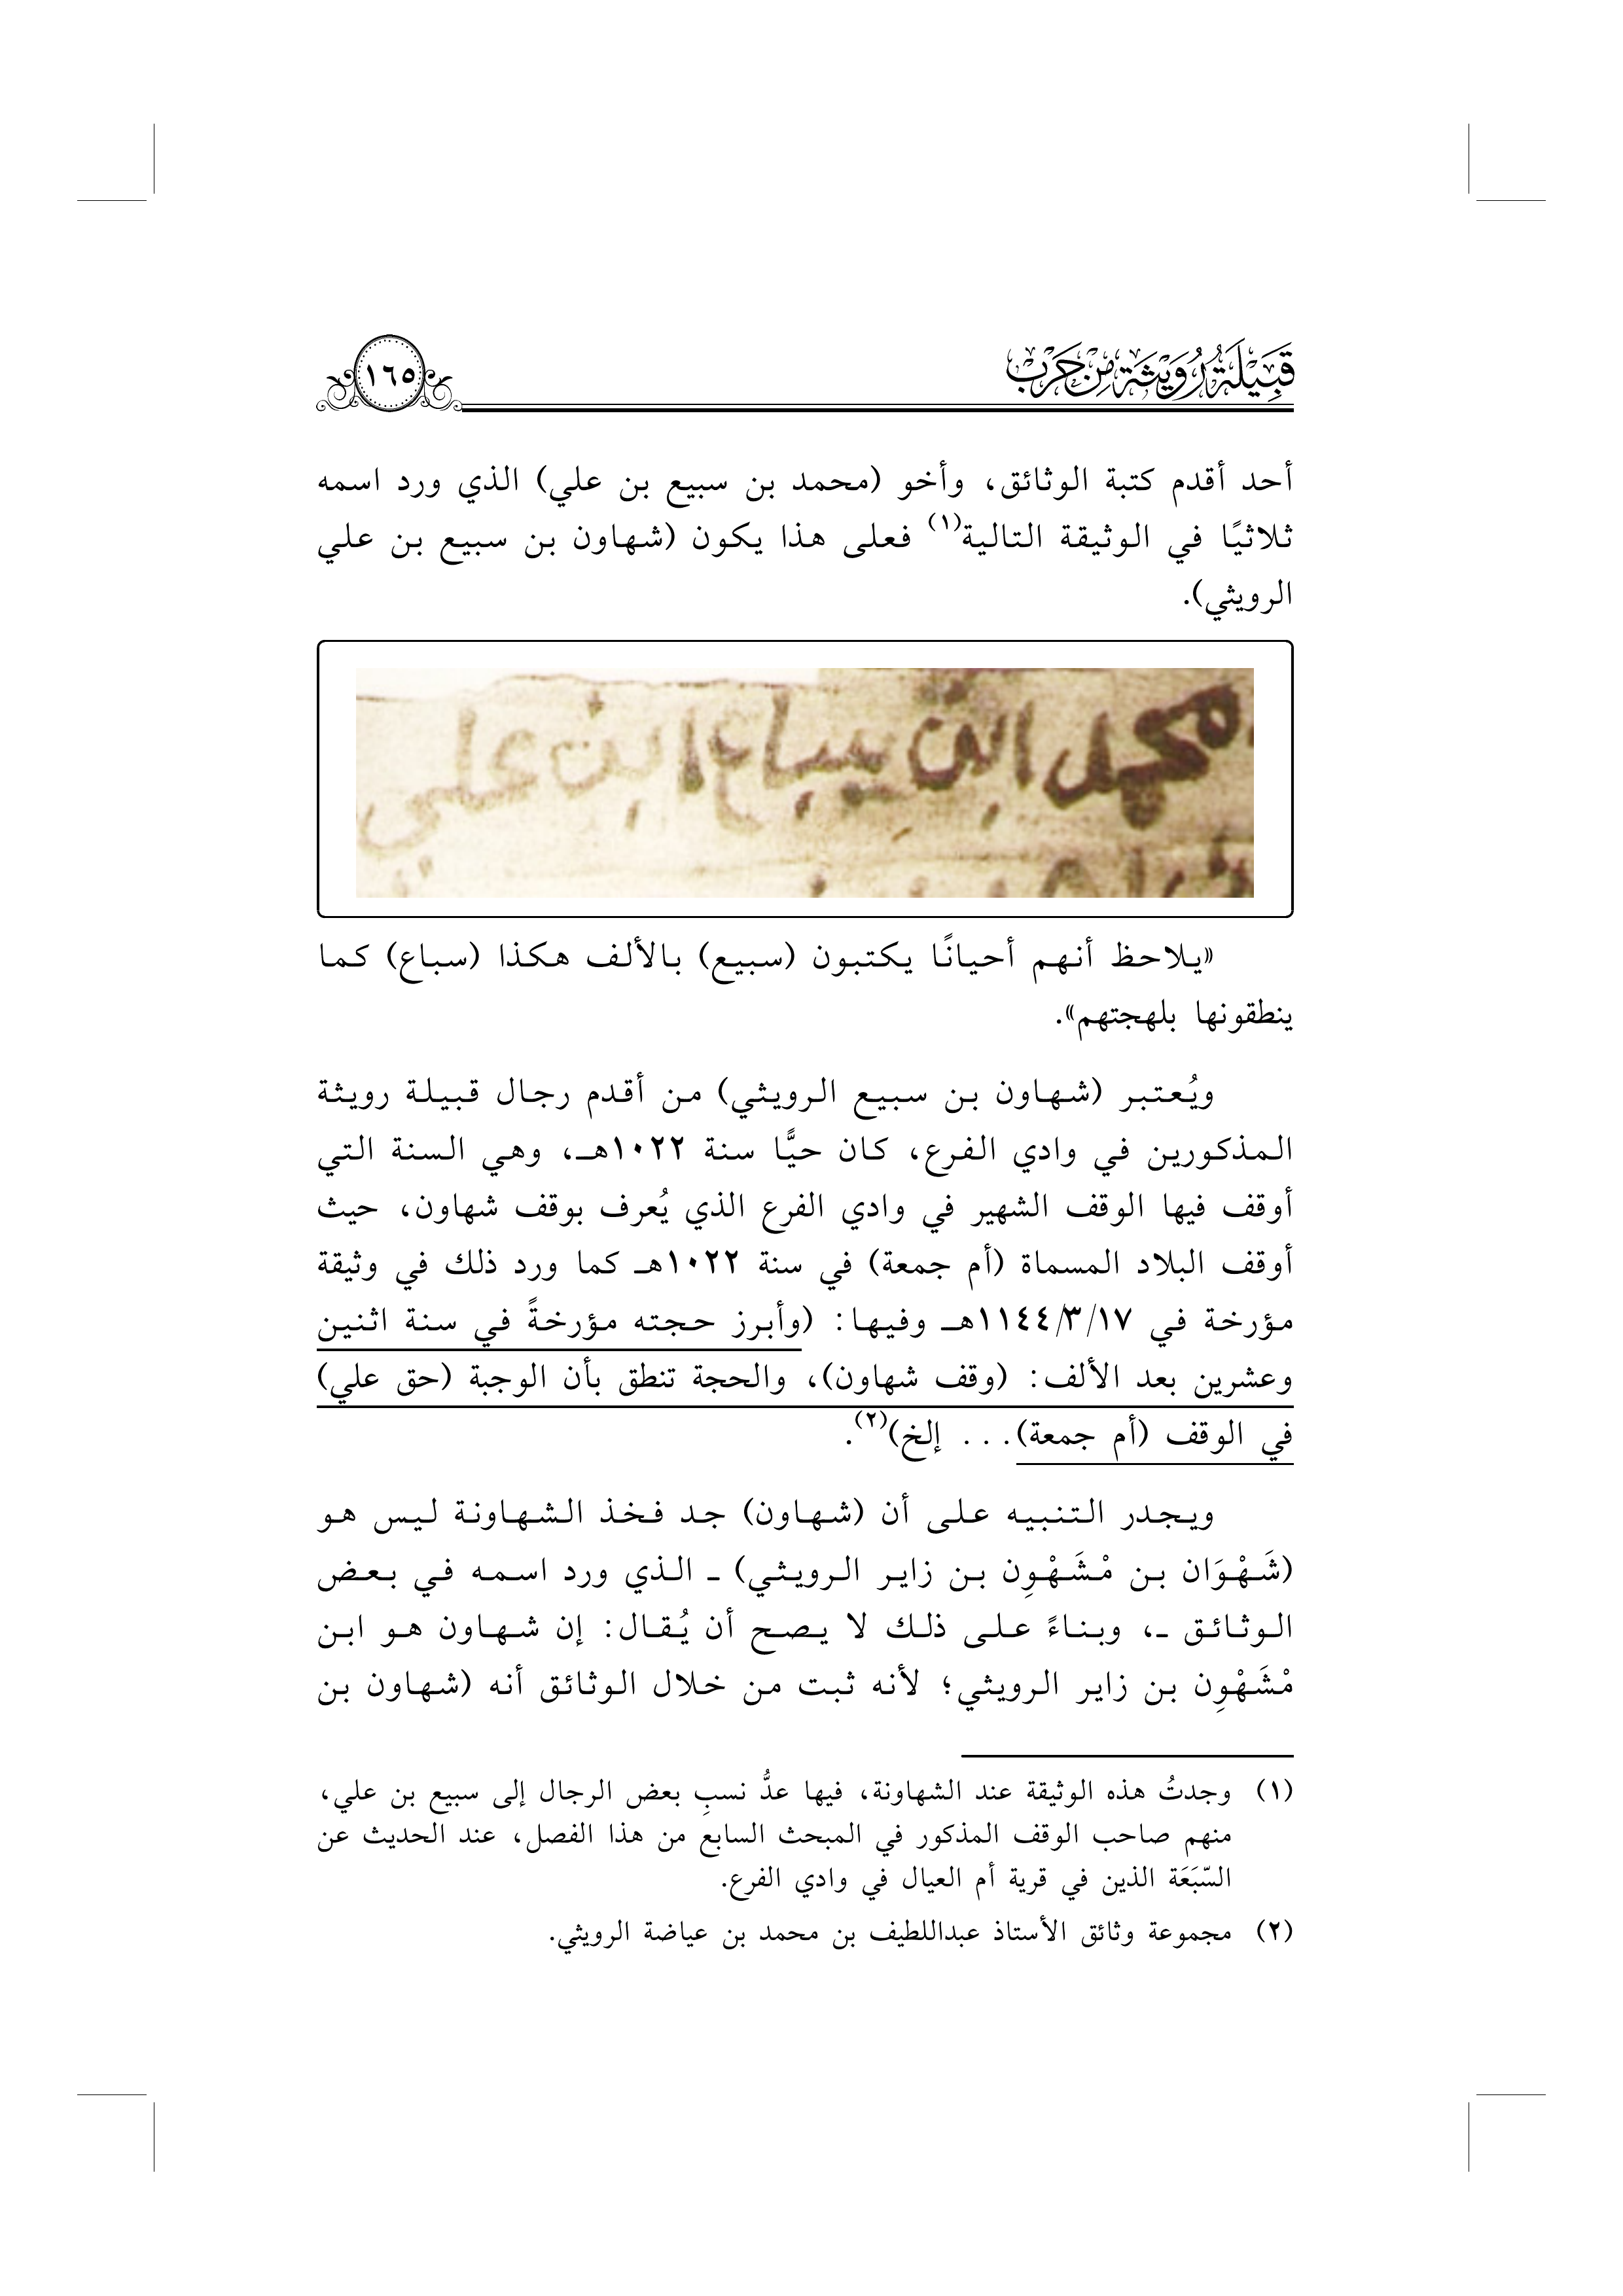 قَبِيلَةُ رُوَيْثَة مِنْ حَرْب
١٦٥
أحد أقدم كتبة الوثائق، وأخو (محمد بن سبيع بن علي) الذي ورد اسمه
ثلاثيًا في الوثيقة التالية(١) فعلى هذا يكون (شهاون بن سبيع بن علي
الرويثي).
محمد ابن سباع ابن علي
«يلاحظ أنهم أحيانًا يكتبون (سبيع) بالألف هكذا (سباع) كما
ينطقونها بلهجتهم».
ويُعتبر (شهاون بن سبيع الرويثي) من أقدم رجال قبيلة رويثة
المذكورين في وادي الفرع، كان حيًّا سنة ١٠٢٢هـ، وهي السنة التي
أوقف فيها الوقف الشهير في وادي الفرع الذي يُعرف بوقف شهاون، حيث
أوقف البلاد المسماة (أم جمعة) في سنة ١٠٢٢هـ كما ورد ذلك في وثيقة
مؤرخة في ١١٤٤/٣/١٧هـ وفيها: (وأبرز حجته مؤرخةً في سنة اثنين
وعشرين بعد الألف: (وقف شهاون)، والحجة تنطق بأن الوجبة (حق علي)
في الوقف (أم جمعة)... إلخ)(٢).
ويجدر التنبيه على أن (شهاون) جد فخذ الشهاونة ليس هو
(شَهْوَان بن مْشَهْوِن بن زاير الرويثي) ـ الذي ورد اسمه في بعض
الوثائق ـ، وبناءً على ذلك لا يصح أن يُقال: إن شهاون هو ابن
مْشَهْوِن بن زاير الرويثي؛ لأنه ثبت من خلال الوثائق أنه (شهاون بن
(١) وجدتُ هذه الوثيقة عند الشهاونة، فيها عدُّ نسبِ بعض الرجال إلى سبيع بن علي،
منهم صاحب الوقف المذكور في المبحث السابع من هذا الفصل، عند الحديث عن
السّبَعَة الذين في قرية أم العيال في وادي الفرع.
(٢) مجموعة وثائق الأستاذ عبداللطيف بن محمد بن عياضة الرويثي.